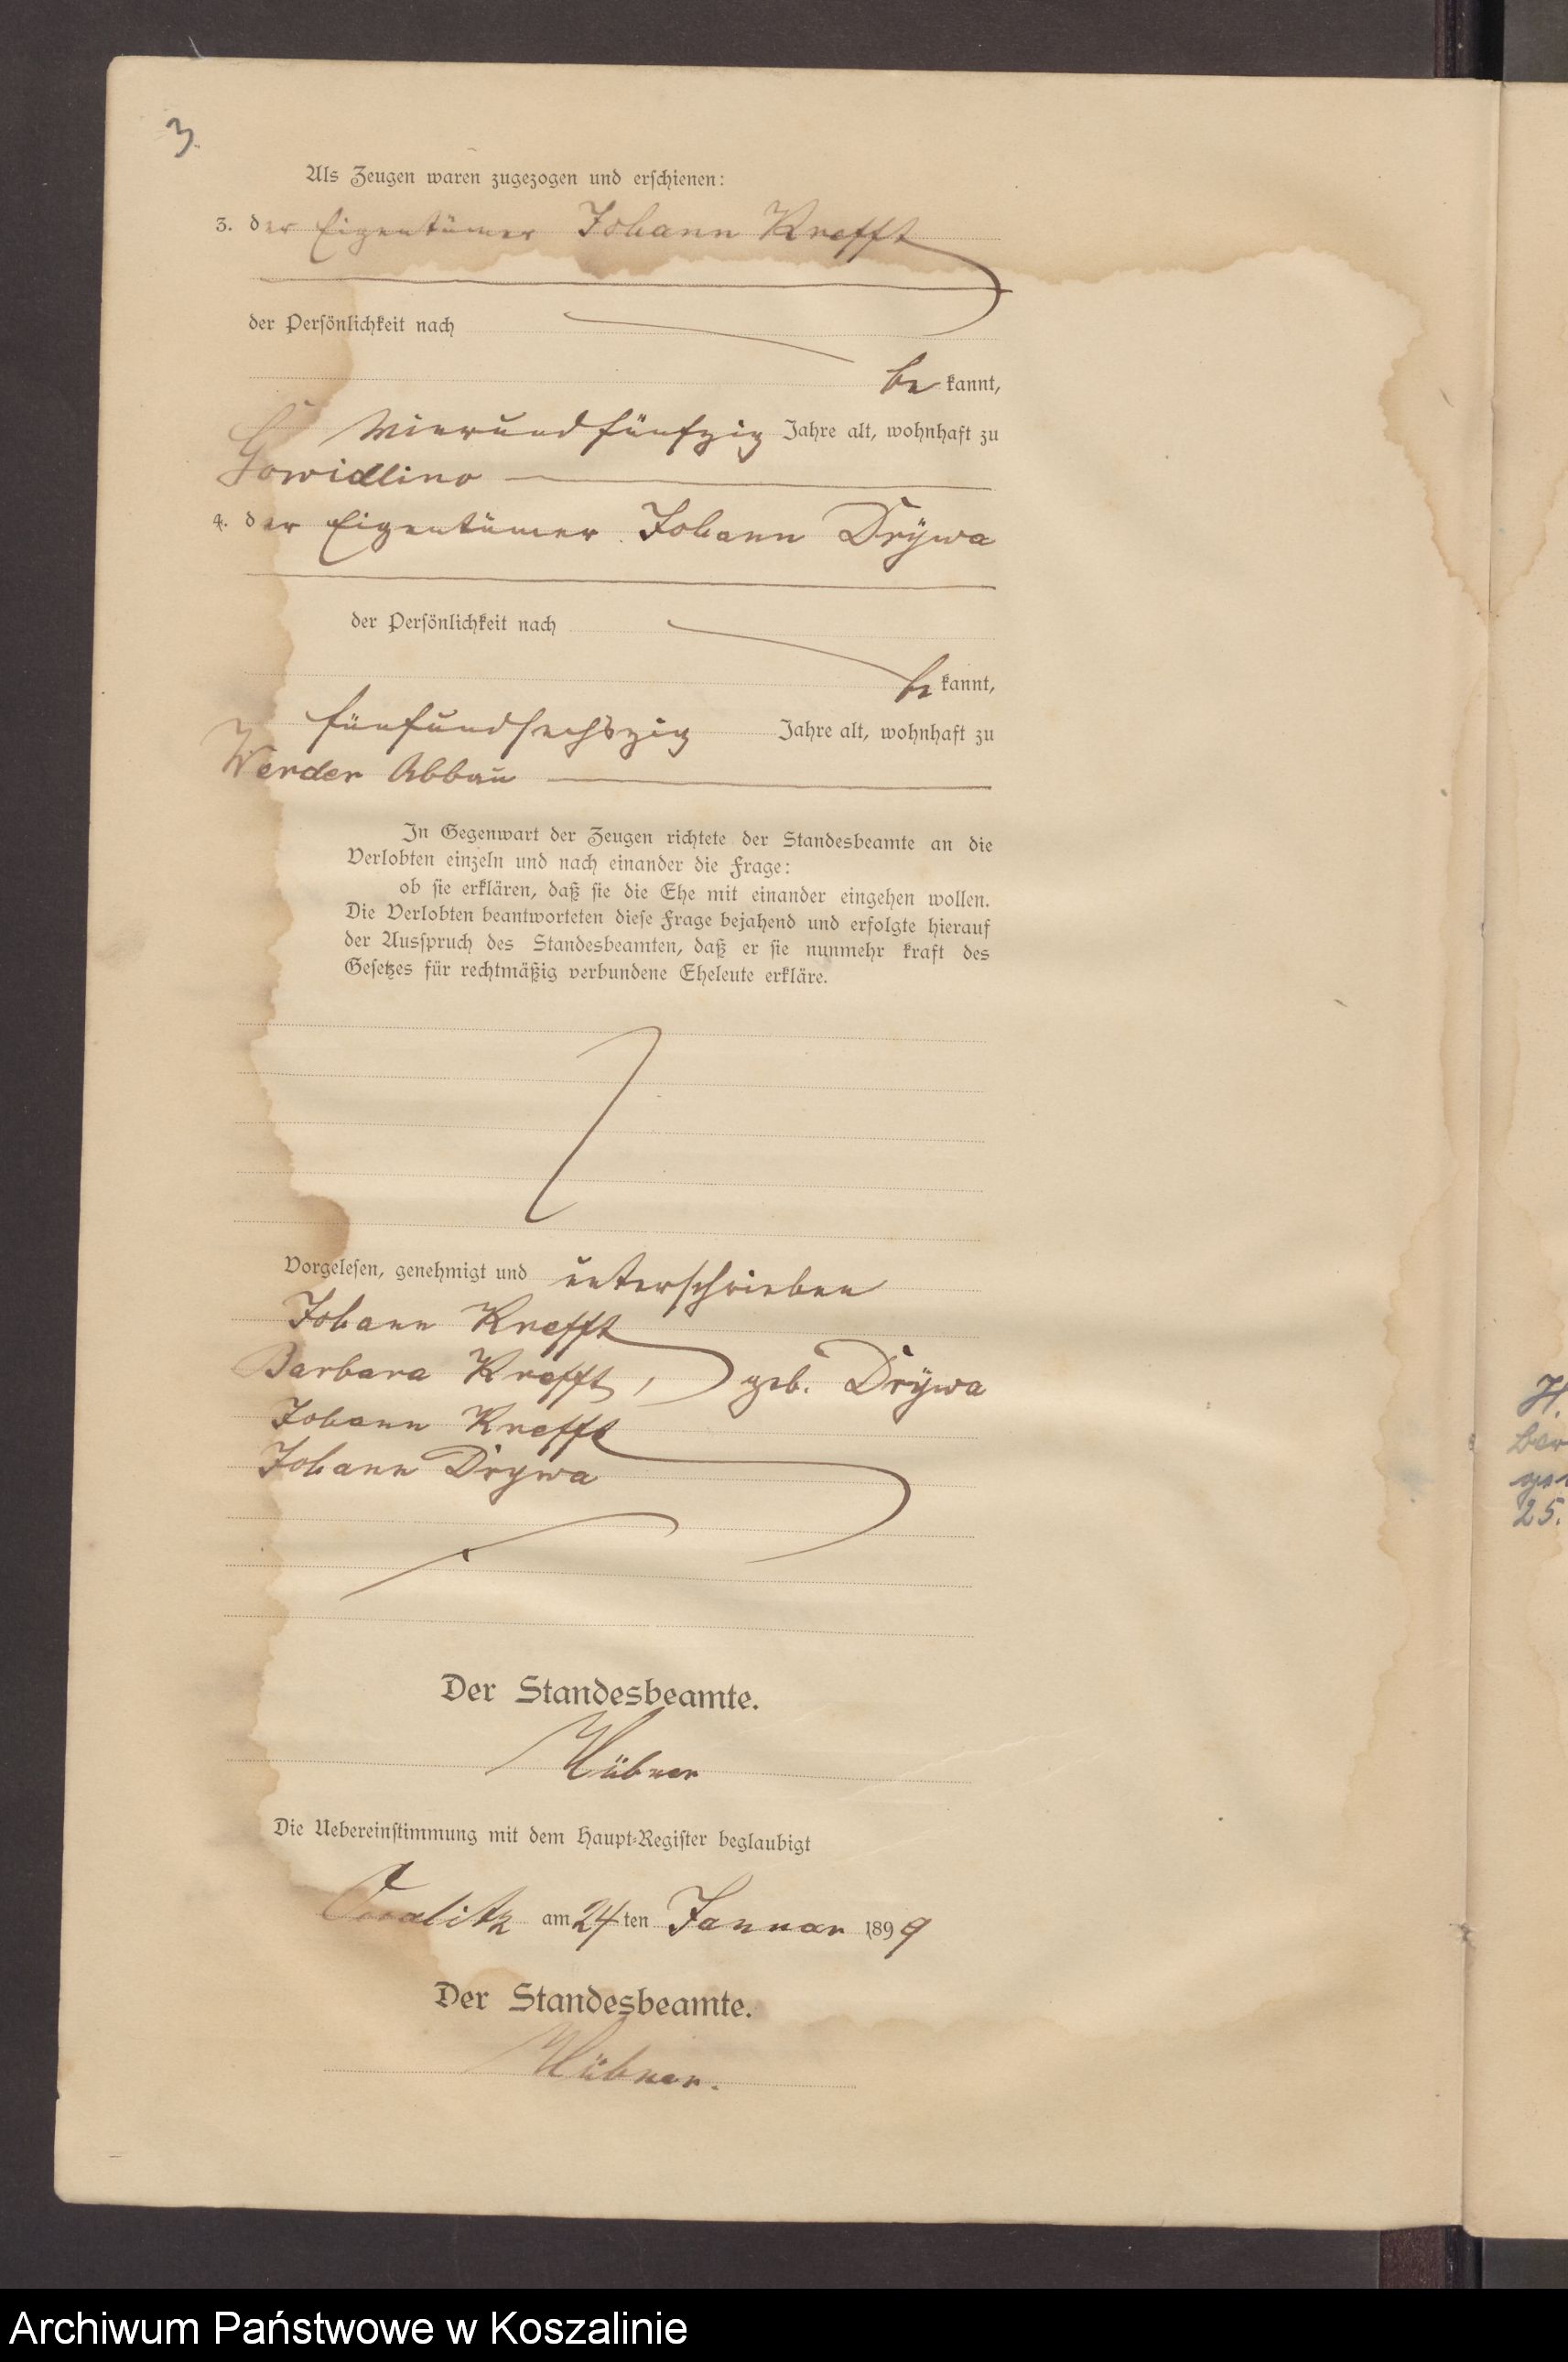 3.
Als Zeugen waren zugezogen und erschienen:
3. der Eigentümer Johann Krefft
der Persönlichkeit nach
be kannt,
vierundfünfzig Jahre alt, wohnhaft zu
Gowidlino
4. der Eigentümer Johann Drÿwa
der Persönlichkeit nach
be kannt,
fünfundsechszig Jahre alt, wohnhaft zu
Werder Abbau
In Gegenwart der Zeugen richtete der Standesbeamte an die
Verlobten einzeln und nach einander die Frage:
ob sie erklären, daß sie die Ehe mit einander eingehen wollen.
Die Verlobten beantworteten diese Frage bejahend und erfolgte hierauf
der Ausspruch des Standesbeamten, daß er sie nunmehr kraft des
Gesetzes für rechtmäßig verbundene Eheleute erkläre.
Vorgelesen, genehmigt und unterschrieben
Johann Krefft
Barbara Krefft, geb. Drÿwa
Johann Krefft
Johann Drywa
Der Standesbeamte.
Hübner
Die Uebereinstimmung mit dem Haupt-Register beglaubigt
am 24ten Januar 1899
Der Standesbeamte.
Hübner.
H.
25.
Archiwum Państwowe w Koszalinie